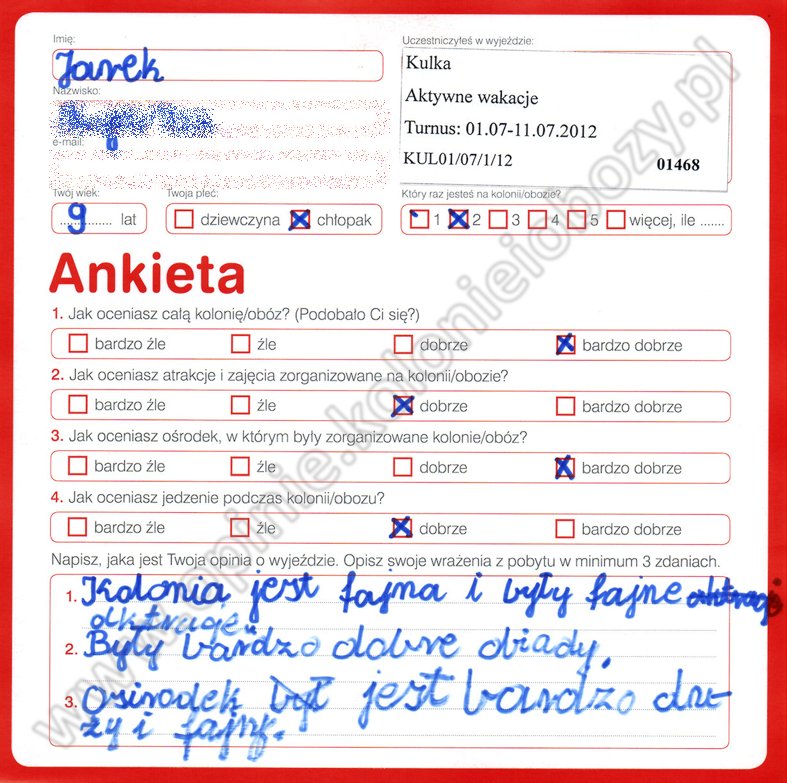 Imię:
Jarek
Nazwisko:
e-mail:
Uczestniczyłeś w wyjeździe:
Kulka
Aktywne wakacje
Turnus: 01.07-11.07.2012
KUL01/07/1/12 01468
Twój wiek:
9 lat
Twoja płeć:
dziewczyna chłopak
Który raz jesteś na kolonii/obozie?
1 2 3 4 5 więcej, ile .......
Ankieta
1. Jak oceniasz całą kolonię/obóz? (Podobało Ci się?)
bardzo źle źle dobrze bardzo dobrze
2. Jak oceniasz atrakcje i zajęcia zorganizowane na kolonii/obozie?
bardzo źle źle dobrze bardzo dobrze
3. Jak oceniasz ośrodek, w którym były zorganizowane kolonie/obóz?
bardzo źle źle dobrze bardzo dobrze
4. Jak oceniasz jedzenie podczas kolonii/obozu?
bardzo źle źle dobrze bardzo dobrze
Napisz, jaka jest Twoja opinia o wyjeździe. Opisz swoje wrażenia z pobytu w minimum 3 zdaniach.
1. Kolonia jest fajna i były fajne
aktracje.
2. Były bardzo dobre obiady.
3. Osirodek był jest bardzo du-
ży i fajny.
www.opinie.kolonieiobozy.pl